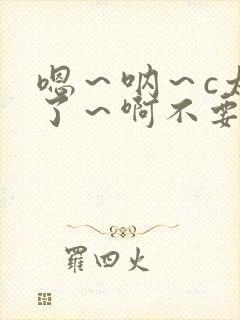 嗯～呐～c
了～啊不要
罗四火